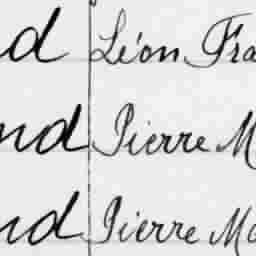 d Léon Fra
nd Pierre M
nd Pierre Ma